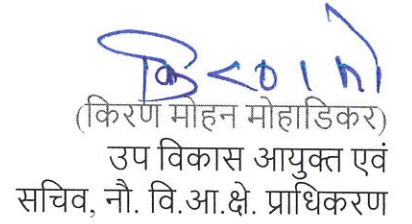 (किरण मोहन मोहाडिकर)
उप विकास आयुक्त एवं
सचिव, नौ. वि.आ.क्षे. प्राधिकरण